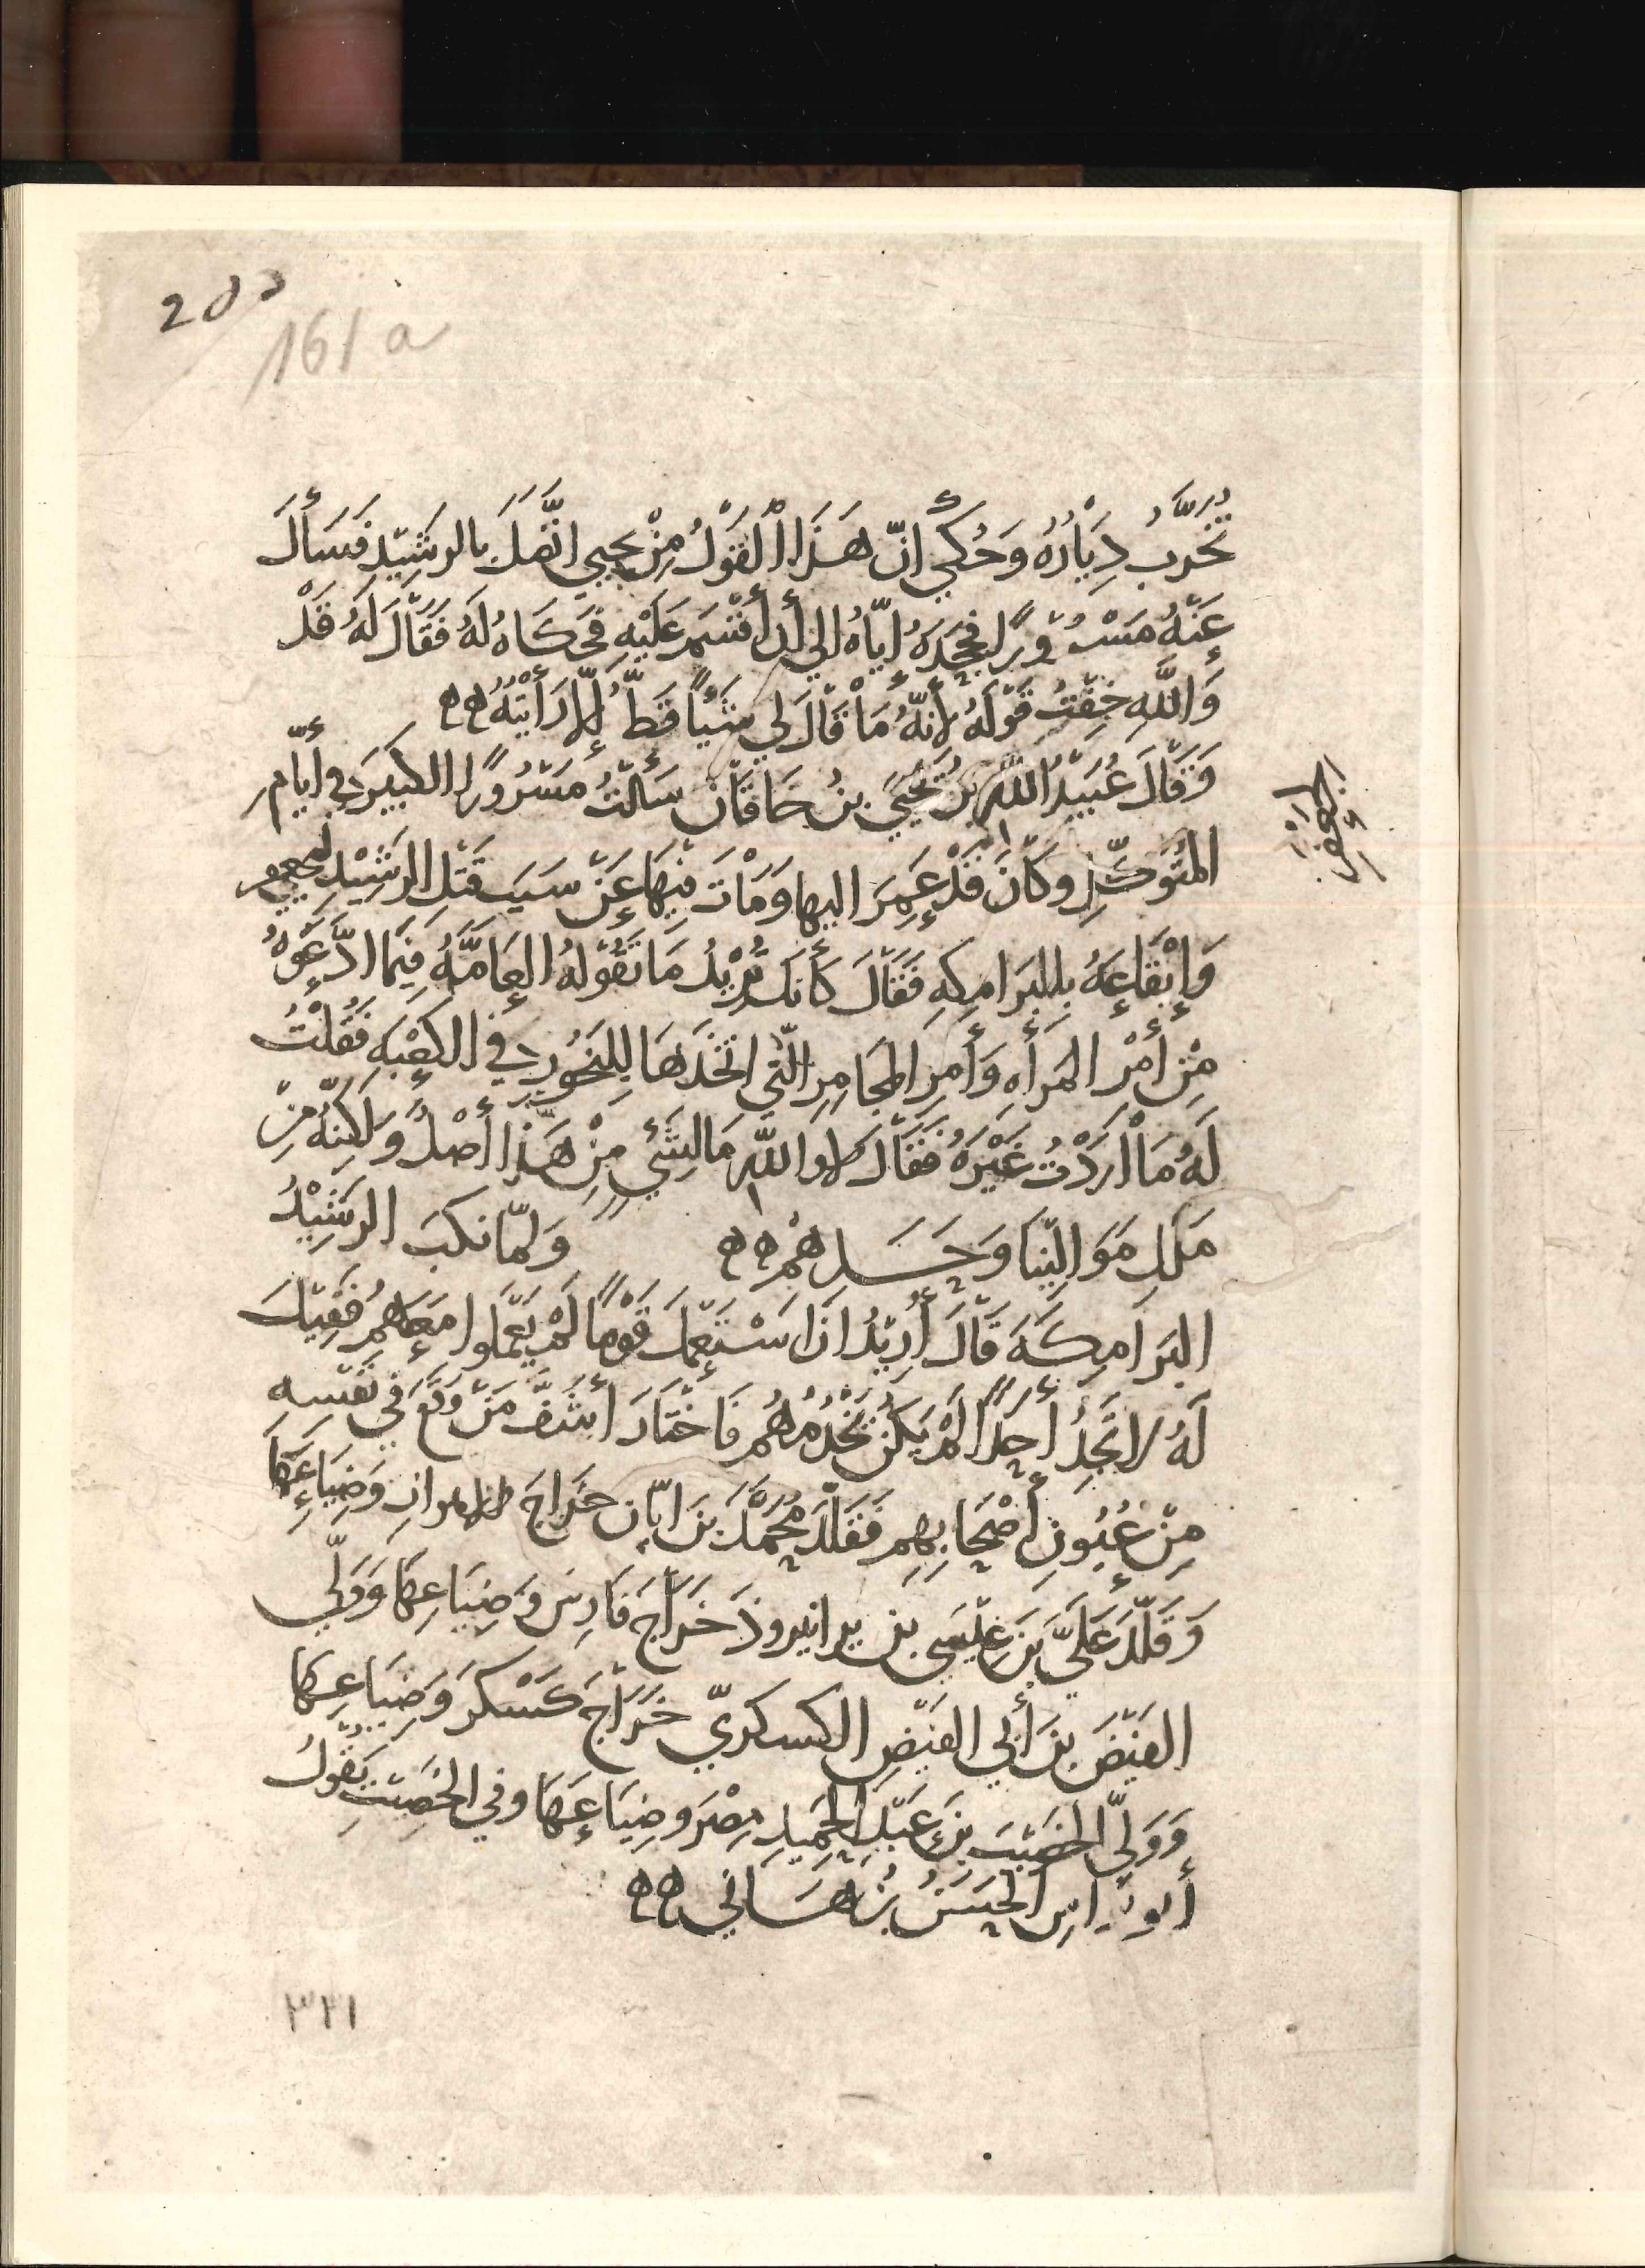 205
161 a
تُخَرَّبُ دِيَارُهُ وَحُكِيَ انّ هَذَا الْقَوْلُ مِنْ يحيي اتَّصَلَ بالرشِيْدِ فَسَأَلَ
عَنْهُ مَسْرُوْرًا فجَحَدَهُ اِيّاهُ الي أن أقْسَمَ عَلَيْهِ فَحَكَاهُ لَهُ فَقَالَ لَهُ قَدْ
وَاللّهِ خِفْتُ قَوْلَهُ لِانّهُ مَا قَالَ لِي شَيْئًا قَطُّ إلّا رَأَيْتُهُ ه ه
وَقَالَ عُبَيْدُ اللّهِ بنُ يَحْيَى بنُ خَاقَانَ سَأَلْتُ مَسْرُوْرًا الكَبِيرَ في أيّامِ
المُتَوَكّلِ وكَانَ قَدْ عَمِرَ اليها وَمَاتَ فِيْهَا عَنْ سَبَبِ قَتْلِ الرشِيْدِ لجعفر
وَإيْقَاعِهِ بِالبَرَامِكِهِ فَقَالَ كَأنكَ تُرِيْدُ مَا تَقُوْلهُ العَامّهُ فِيمَا ادّعَوْهُ
مِنْ أمْرِ المَرأهِ وَأمرِ المَجَامِرِ الّتي اتخَذَهَا لِلبَخُورِ في الكَعْبهِ فَقُلْتُ
لَهُ مَا أرَدْتُ غَيْرَهُ فَقَالَ لا واللّهِ مَا لِشَيءٍ مِنْ هَذَا أصْلٌ وَلكِنهُ مِنْ
مَلَلِ مَوَالِيْنَا وَحَسَدِهمْ ه ه وَلمّا نكبَ الرشِيْدُ
البَرَامِكَهَ قَالَ أُرِيْدُ ان اسْتَعْمِلَ قَوْمًا لَمْ يَعْمَلوا مَعَهُمْ فَقِيْلَ
لَهُ لا تَجِدُ أحَدًا لَمْ يَكُنْ يَخْدُمُهُم فَاخْتَارَ أشَفَّ مَنْ وَقَعَ في نَفْسِهِ
مِنْ عُيُونِ أصْحَابِهِم فَقَلّدَ مُحَمّدَ بنَ ابّان خَرَاجَ الاهوازِ وَضِيَاعِهَا
وَقَلّدَ عَلَيَّ بنَ عِيْسَى بن يردانيروذ خَرَاجَ فَارِسَ وَضِيَاعِهَا وَوَلّي
الفَيْضَ بنَ أبي الفَيْضِ الكسكريّ خَرَاجَ كَسْكَرَ وَضِيَاعِهَا
وَوَلّي الخَصِيْبَ بنَ عَبْدِ الحَمِيدِ مِصْرَ وضِيَاعِهَا وفي الخَصِيْبِ يَقُولُ
أبو نواس الحَسَنُ بنُ هَانِي ه ه
٣٢١